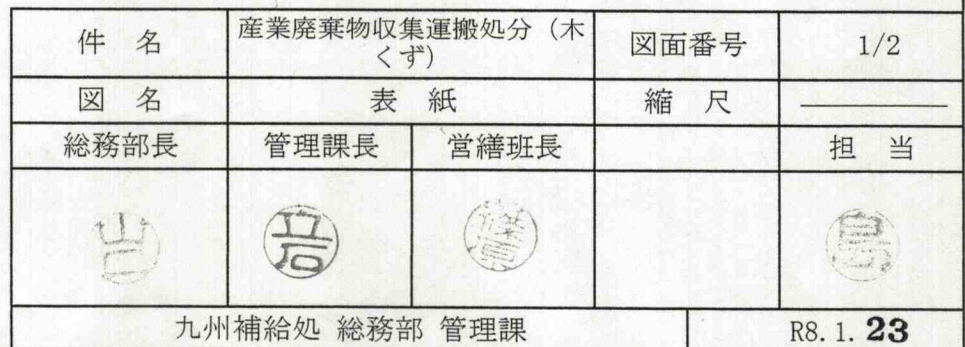 件 名 産業廃棄物収集運搬処分（木くず） 図面番号 1/2
図 名 表 紙 縮 尺
総務部長 管理課長 営繕班長 担 当
九州補給処 総務部 管理課 R8.1.23